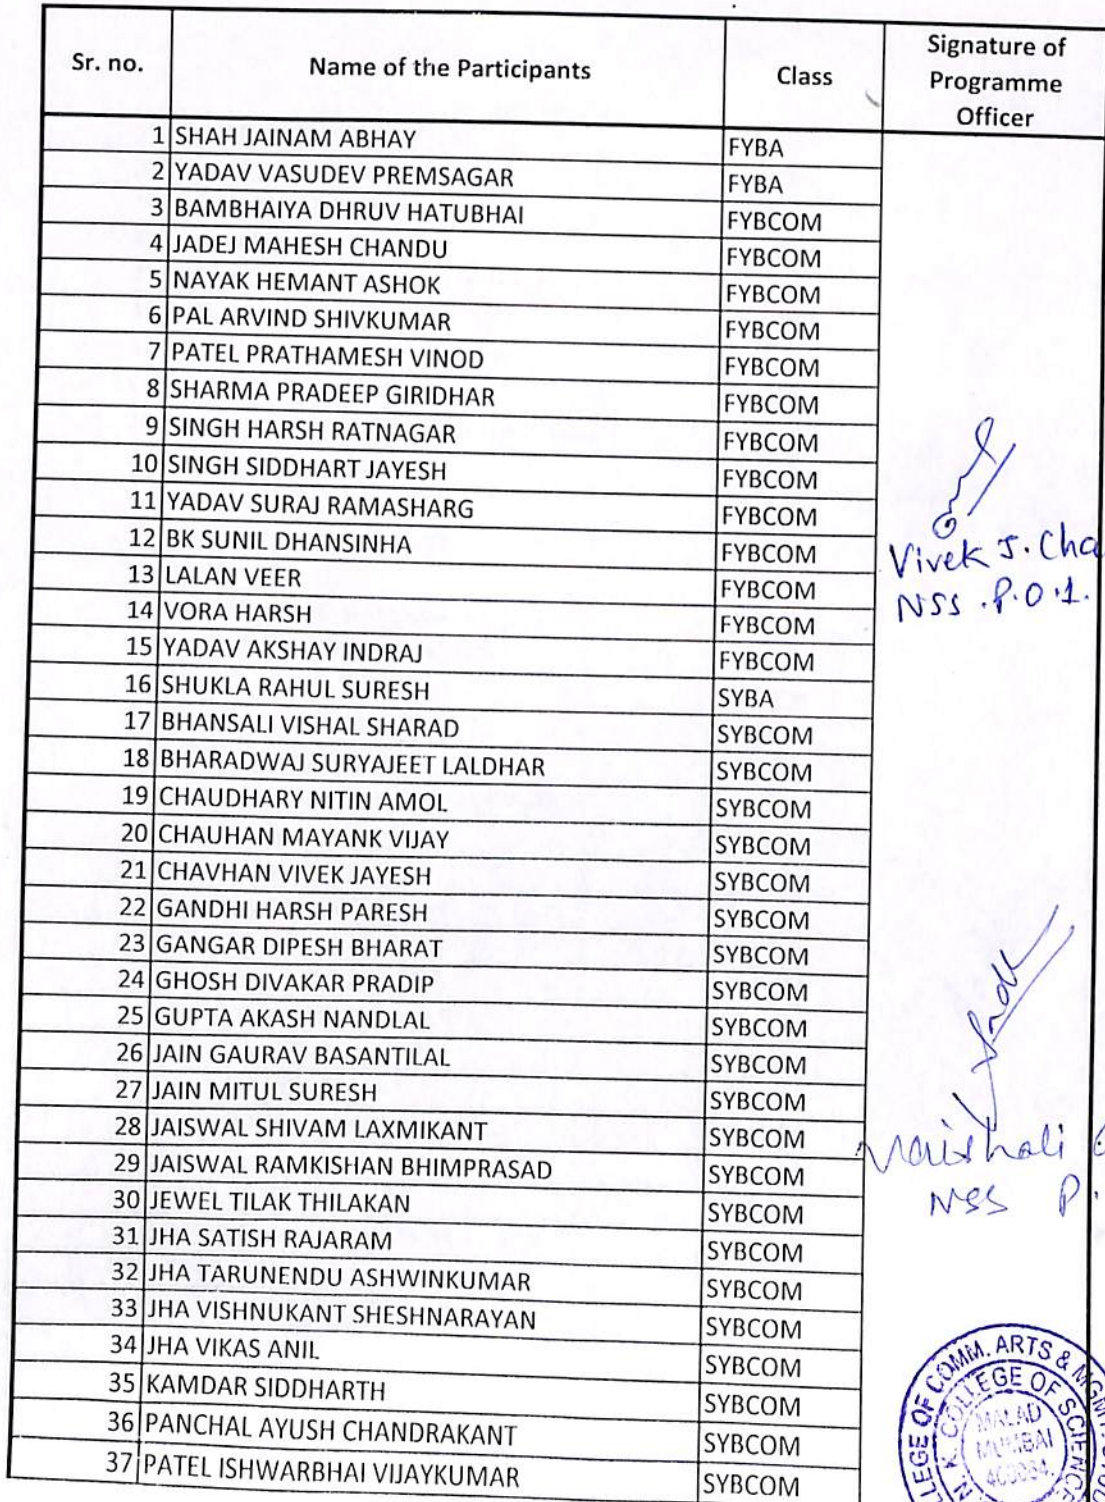 Sr. no. Name of the Participants Class Signature of Programme Officer
1 SHAH JAINAM ABHAY FYBA
2 YADAV VASUDEV PREMSAGAR FYBA
3 BAMBHAIYA DHRUV HATUBHAI FYBCOM
4 JADEJ MAHESH CHANDU FYBCOM
5 NAYAK HEMANT ASHOK FYBCOM
6 PAL ARVIND SHIVKUMAR FYBCOM
7 PATEL PRATHAMESH VINOD FYBCOM
8 SHARMA PRADEEP GIRIDHAR FYBCOM
9 SINGH HARSH RATNAGAR FYBCOM
10 SINGH SIDDHART JAYESH FYBCOM
11 YADAV SURAJ RAMASHARG FYBCOM
12 BK SUNIL DHANSINHA FYBCOM
13 LALAN VEER FYBCOM
14 VORA HARSH FYBCOM
15 YADAV AKSHAY INDRAJ FYBCOM
16 SHUKLA RAHUL SURESH SYBA
17 BHANSALI VISHAL SHARAD SYBCOM
18 BHARADWAJ SURYAJEET LALDHAR SYBCOM
19 CHAUDHARY NITIN AMOL SYBCOM
20 CHAUHAN MAYANK VIJAY SYBCOM
21 CHAVHAN VIVEK JAYESH SYBCOM
22 GANDHI HARSH PARESH SYBCOM
23 GANGAR DIPESH BHARAT SYBCOM
24 GHOSH DIVAKAR PRADIP SYBCOM
25 GUPTA AKASH NANDLAL SYBCOM
26 JAIN GAURAV BASANTILAL SYBCOM
27 JAIN MITUL SURESH SYBCOM
28 JAISWAL SHIVAM LAXMIKANT SYBCOM
29 JAISWAL RAMKISHAN BHIMPRASAD SYBCOM
30 JEWEL TILAK THILAKAN SYBCOM
31 JHA SATISH RAJARAM SYBCOM
32 JHA TARUNENDU ASHWINKUMAR SYBCOM
33 JHA VISHNUKANT SHESHNARAYAN SYBCOM
34 JHA VIKAS ANIL SYBCOM
35 KAMDAR SIDDHARTH SYBCOM
36 PANCHAL AYUSH CHANDRAKANT SYBCOM
37 PATEL ISHWARBHAI VIJAYKUMAR SYBCOM
Vivek J. Cha
NSS .P.O.1.
Vaishali
NSS P.
LEGE OF COMM. ARTS & MGMT
N. K. COLLEGE OF SCIENCE
MALAD
MUMBAI
400064